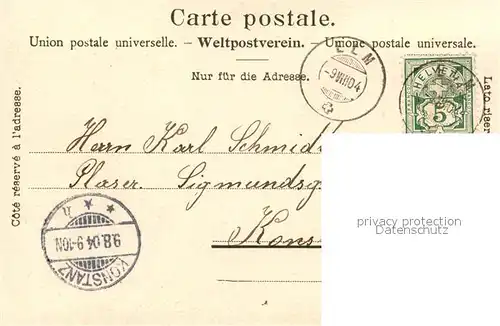 Carte postale.
Union postale universelle. – Weltpostverein. – Unione postale universale.
Nur für die Adresse.
Côté réservé à l'adresse.
Lato riser
ELM
-9.VIII.04
HELVETIA
5
Herrn Karl Schmid
Sigmundsg
Kons
KONSTANZ
9.8.04.9-10N.
privacy protection
Datenschutz